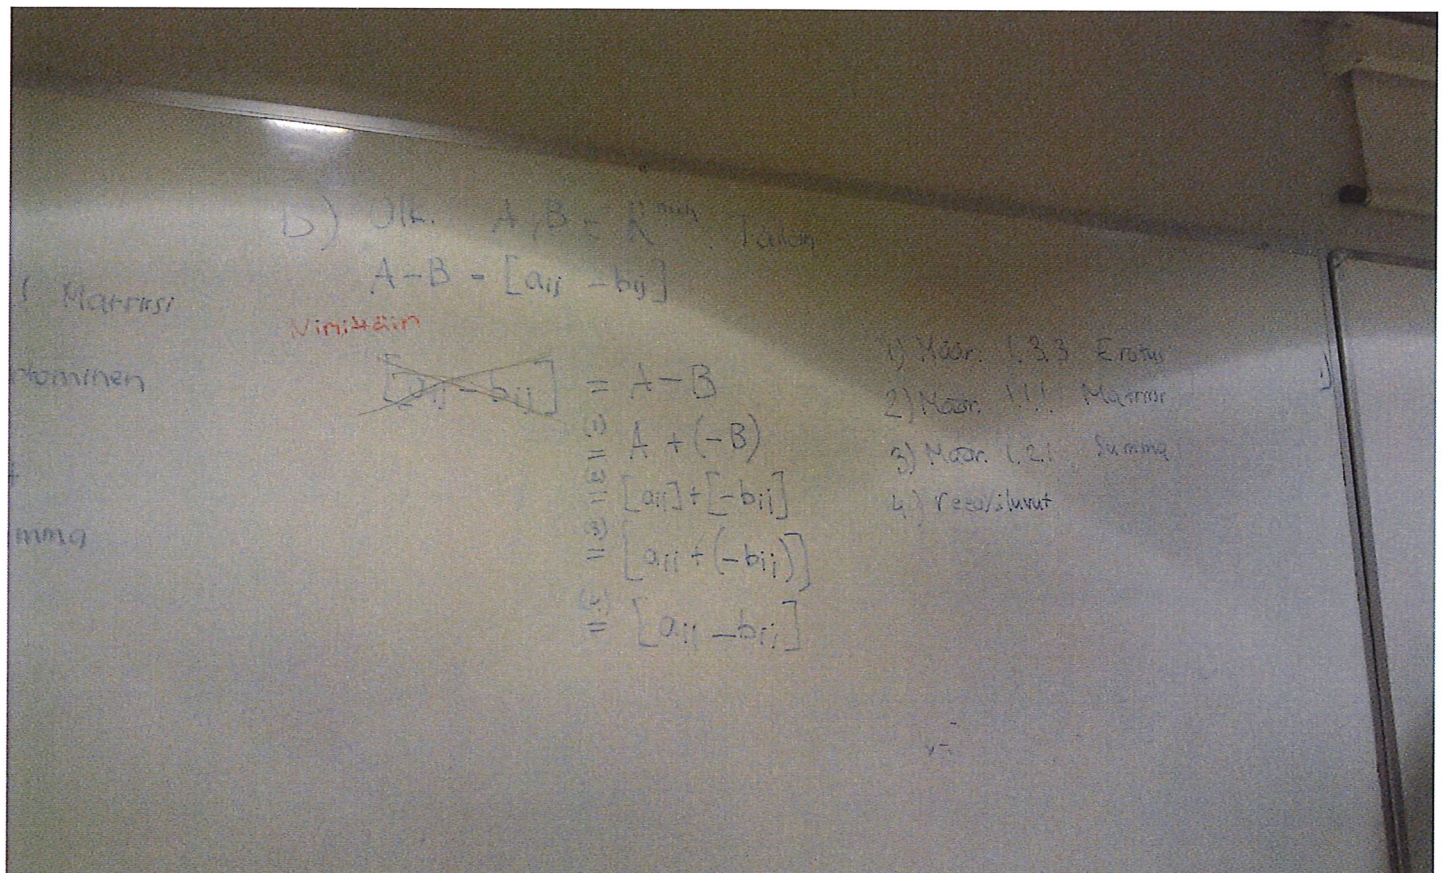 b) Olk. A, B ∈ R^mxn. Tällöin
A - B = [aij - bij]
Nimittäin
[aij - bij] = A - B
(1) = A + (-B)
(2) = [aij] + [-bij]
(3) = [aij + (-bij)]
(4) = [aij - bij]
1) Määr. 1.3.3 Erotus
2) Määr. 1.1.1 Matriisi
3) Määr. 1.2.1 Summa
4) reaaliluvut
Matriisi